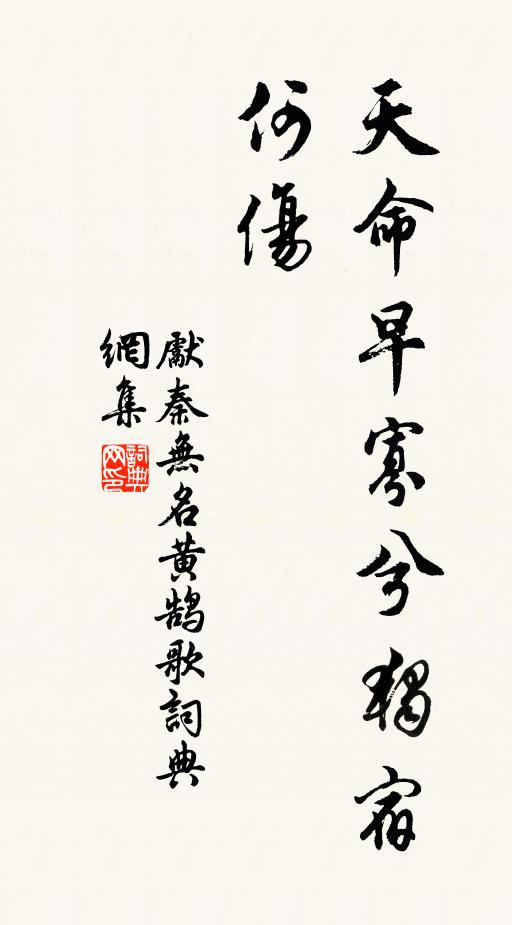 天命早寡兮獨宿
何傷
獻秦無名黄鵠歌詞典
網集
詞典
网印